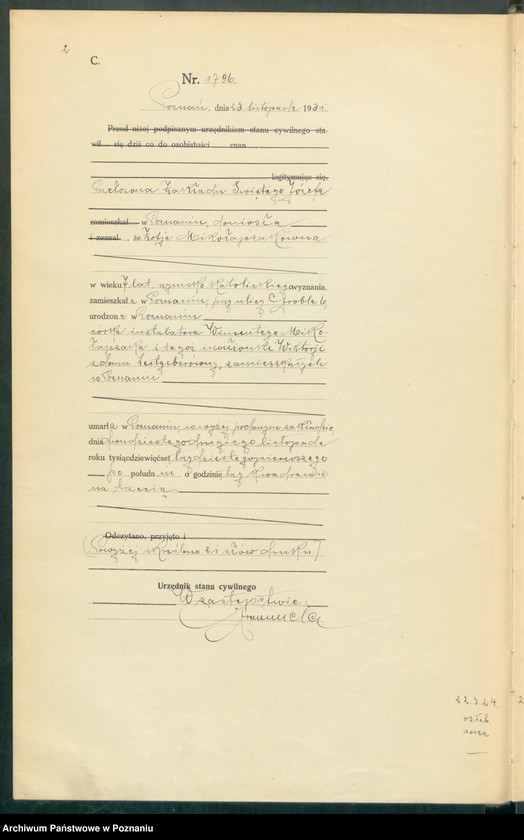 2
C.
Nr. 1796
Poznań, dnia 23 listopada 1931.
Przed niżej podpisanym urzędnikiem stanu cywilnego sta-
wił się dziś co do osobistości znan
legitymując się,
Przełożona Zakładu Świętego Józefa
zamieszkał w Poznaniu, doniosła
i zeznał, że Zofja Mikołajczakówna
w wieku 7 lat, rzymsko katolickiego wyznania,
zamieszkała w Poznaniu, przy ulicy Groble 6,
urodzona w Poznaniu
córka instalatora Wincentego Miko-
łajczaka i tegoż małżonki Wiktorji
z domu zamieszkałych
w Poznaniu
umarła w Poznaniu, w wyżej podanym zakładzie
dnia dwudziestego drugiego listopada
roku tysiącdziewięćset trzydziestego pierwszego
po południu o godzinie trzy kwadranse
na trzecią
Odczytano, przyjęto i
(Powyżej skreślono 21 słów druku)
Urzędnik stanu cywilnego
W zastępstwie:
22.3.24.
osłab.
serca
Archiwum Państwowe w Poznaniu